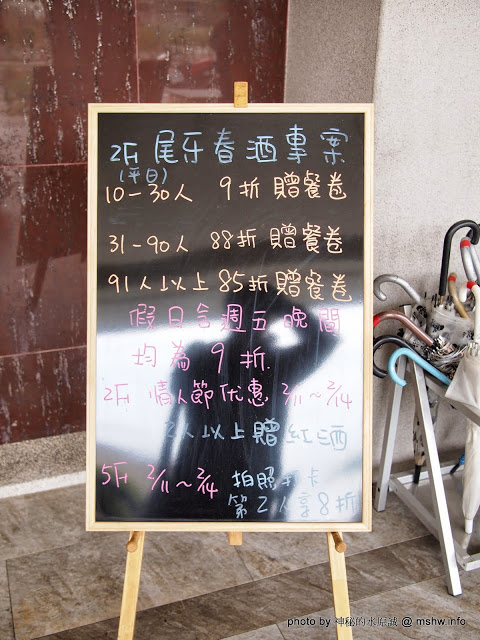 2F 尾牙春酒專案
(平日)
10-30人 9折 贈餐卷
31-90人 88折 贈餐卷
91人以上 85折 贈餐卷
假日含週五晚間
均為9折.
2F 情人節优惠 2/11~2/14
2人以上贈紅酒
5F 2/11~2/14 拍照打卡
第2人享8折
photo by 神秘的水原誠 @ mshw.info